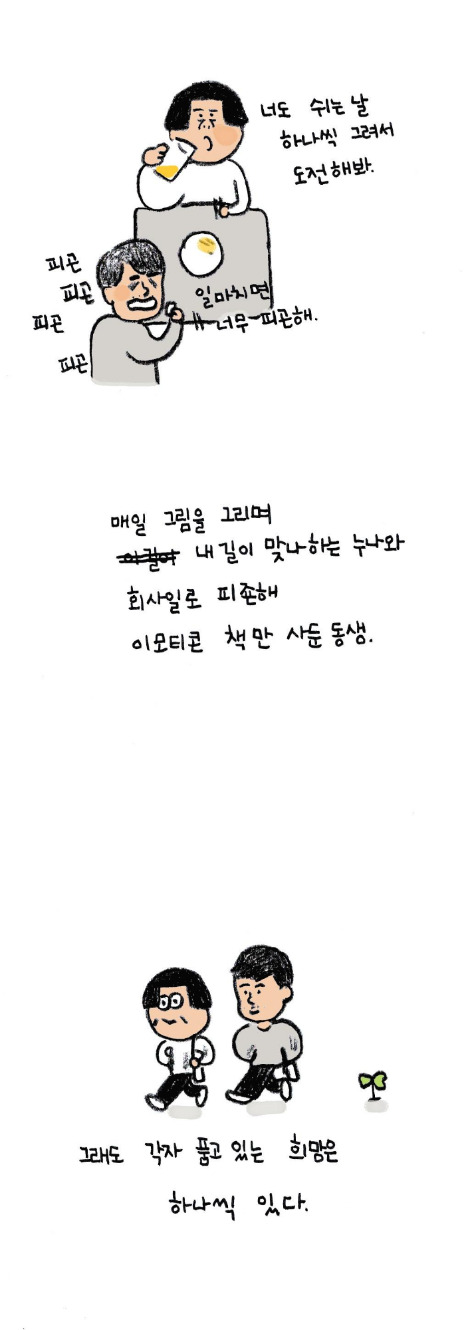 너도 쉬는 날
하나씩 그려서
도전해봐.
피곤
피곤
피곤
피곤
일마치면
너무 피곤해.
매일 그림을 그리며
내길이 맞나하는 누나와
회사일로 피곤해
이모티콘 책만 사둔 동생.
그래도 각자 품고 있는 희망은
하나씩 있다.